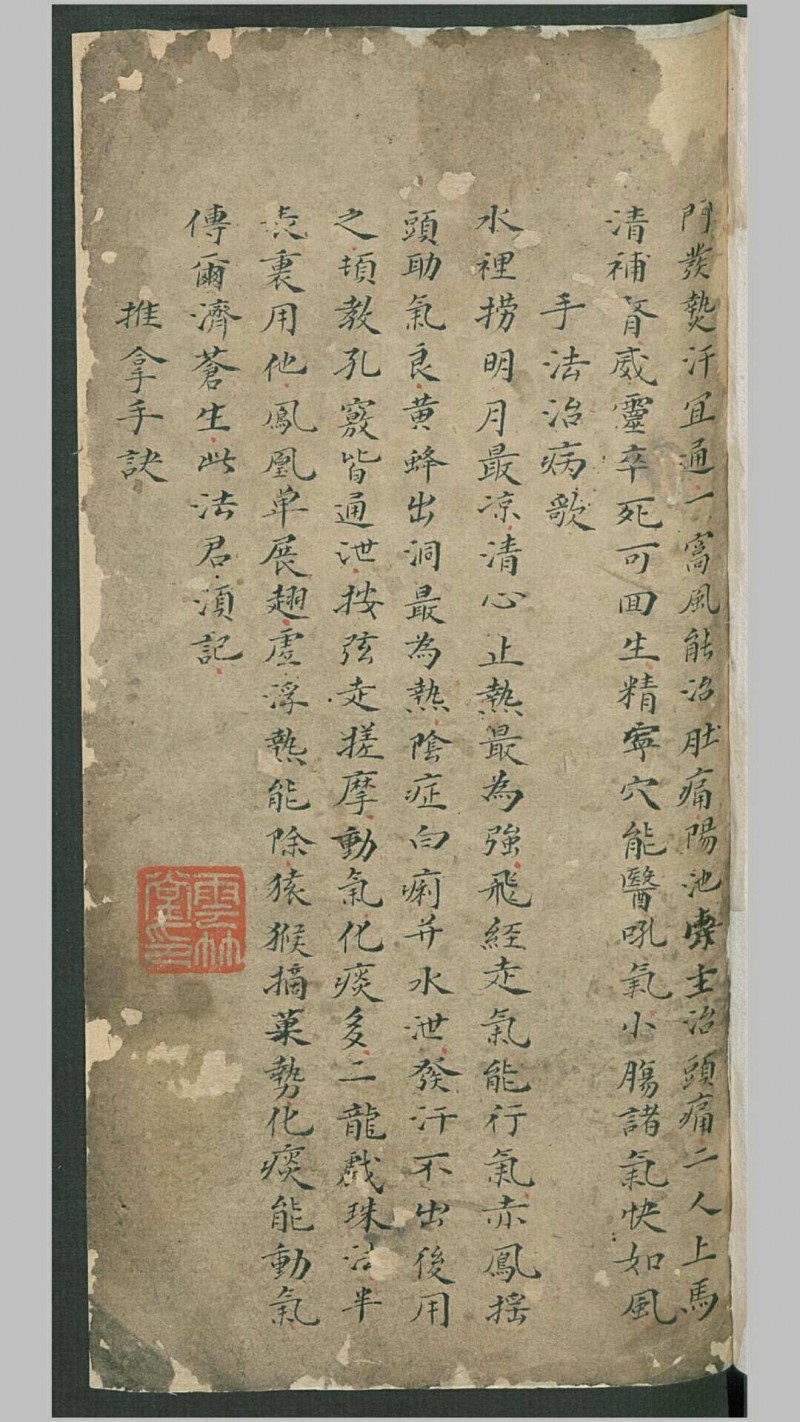 門發熱汗宜通一窩風能治肚痛陽池穴主治頭痛二人上馬
清補腎威靈卒死可回生精寧穴能醫吼氣小腸諸氣快如風
手法治病歌
水裡撈明月最凉清心止熱最為強飛經走氣能行氣赤鳳摇
頭助氣良黄蜂出洞最為熱陰症白痢并水泄發汗不出後用
之頓教孔竅皆通泄按弦走搓摩動氣化痰多二龍戲珠法半
表裏用他鳳凰单展翅虚浮熱能除猿猴摘菓勢化痰能動氣
傳爾濟蒼生此法君須記
推拿手訣
雲林堂記